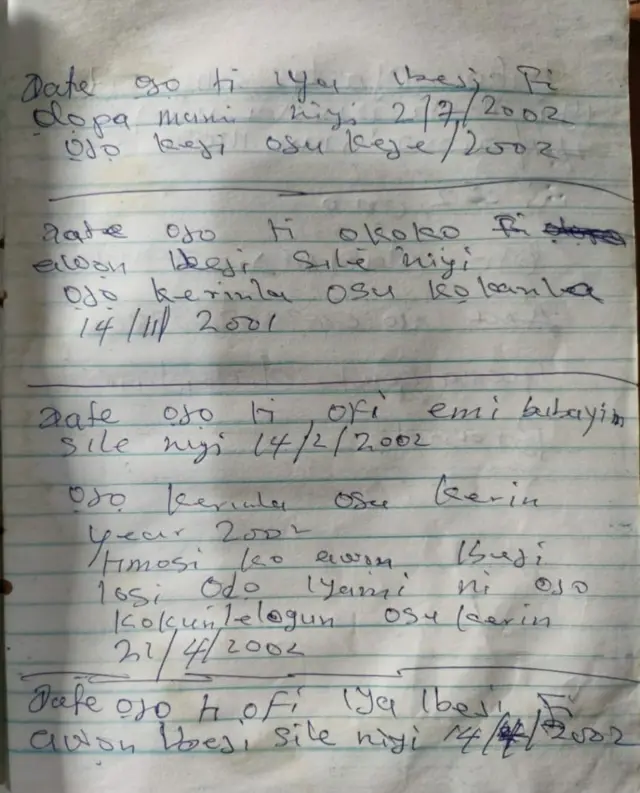 Date ojo ti iya Ibeji Fi
dopa mumi niyi 2/7/2002
ojo keji osu keje/2002
Date ojo ti okoko Fi
awon Ibeji sile niyi
ojo kerinla osu kokanla
14/11/ 2001
Date ojo ti ofi emi bubayim
sile niyi 14/2/2002
ojo kerinla osu kerin
year 2002
timosi ko awon Ibeji
losi odo Iyami ni ojo
kokunlelogun osu kerin
21/4/2002
Date ojo ti ofi Iya Ibeji Fi
awon Ibeji sile niyi 14/4/2002